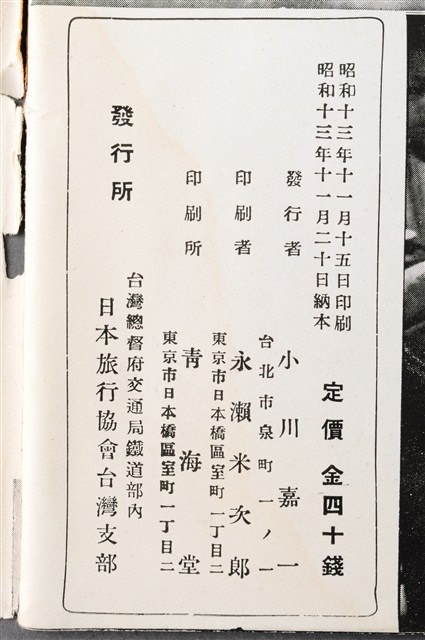 昭和十三年十一月十五日印刷
昭和十三年十一月二十日納本
定價 金四十錢
發行者 小川嘉一
台北市泉町一ノ一
印刷者 永瀨米次郎
東京市日本橋區室町一丁目二
印刷所 靑海堂
東京市日本橋區室町一丁目二
發行所
台灣總督府交通局鐵道部內
日本旅行協會台灣支部